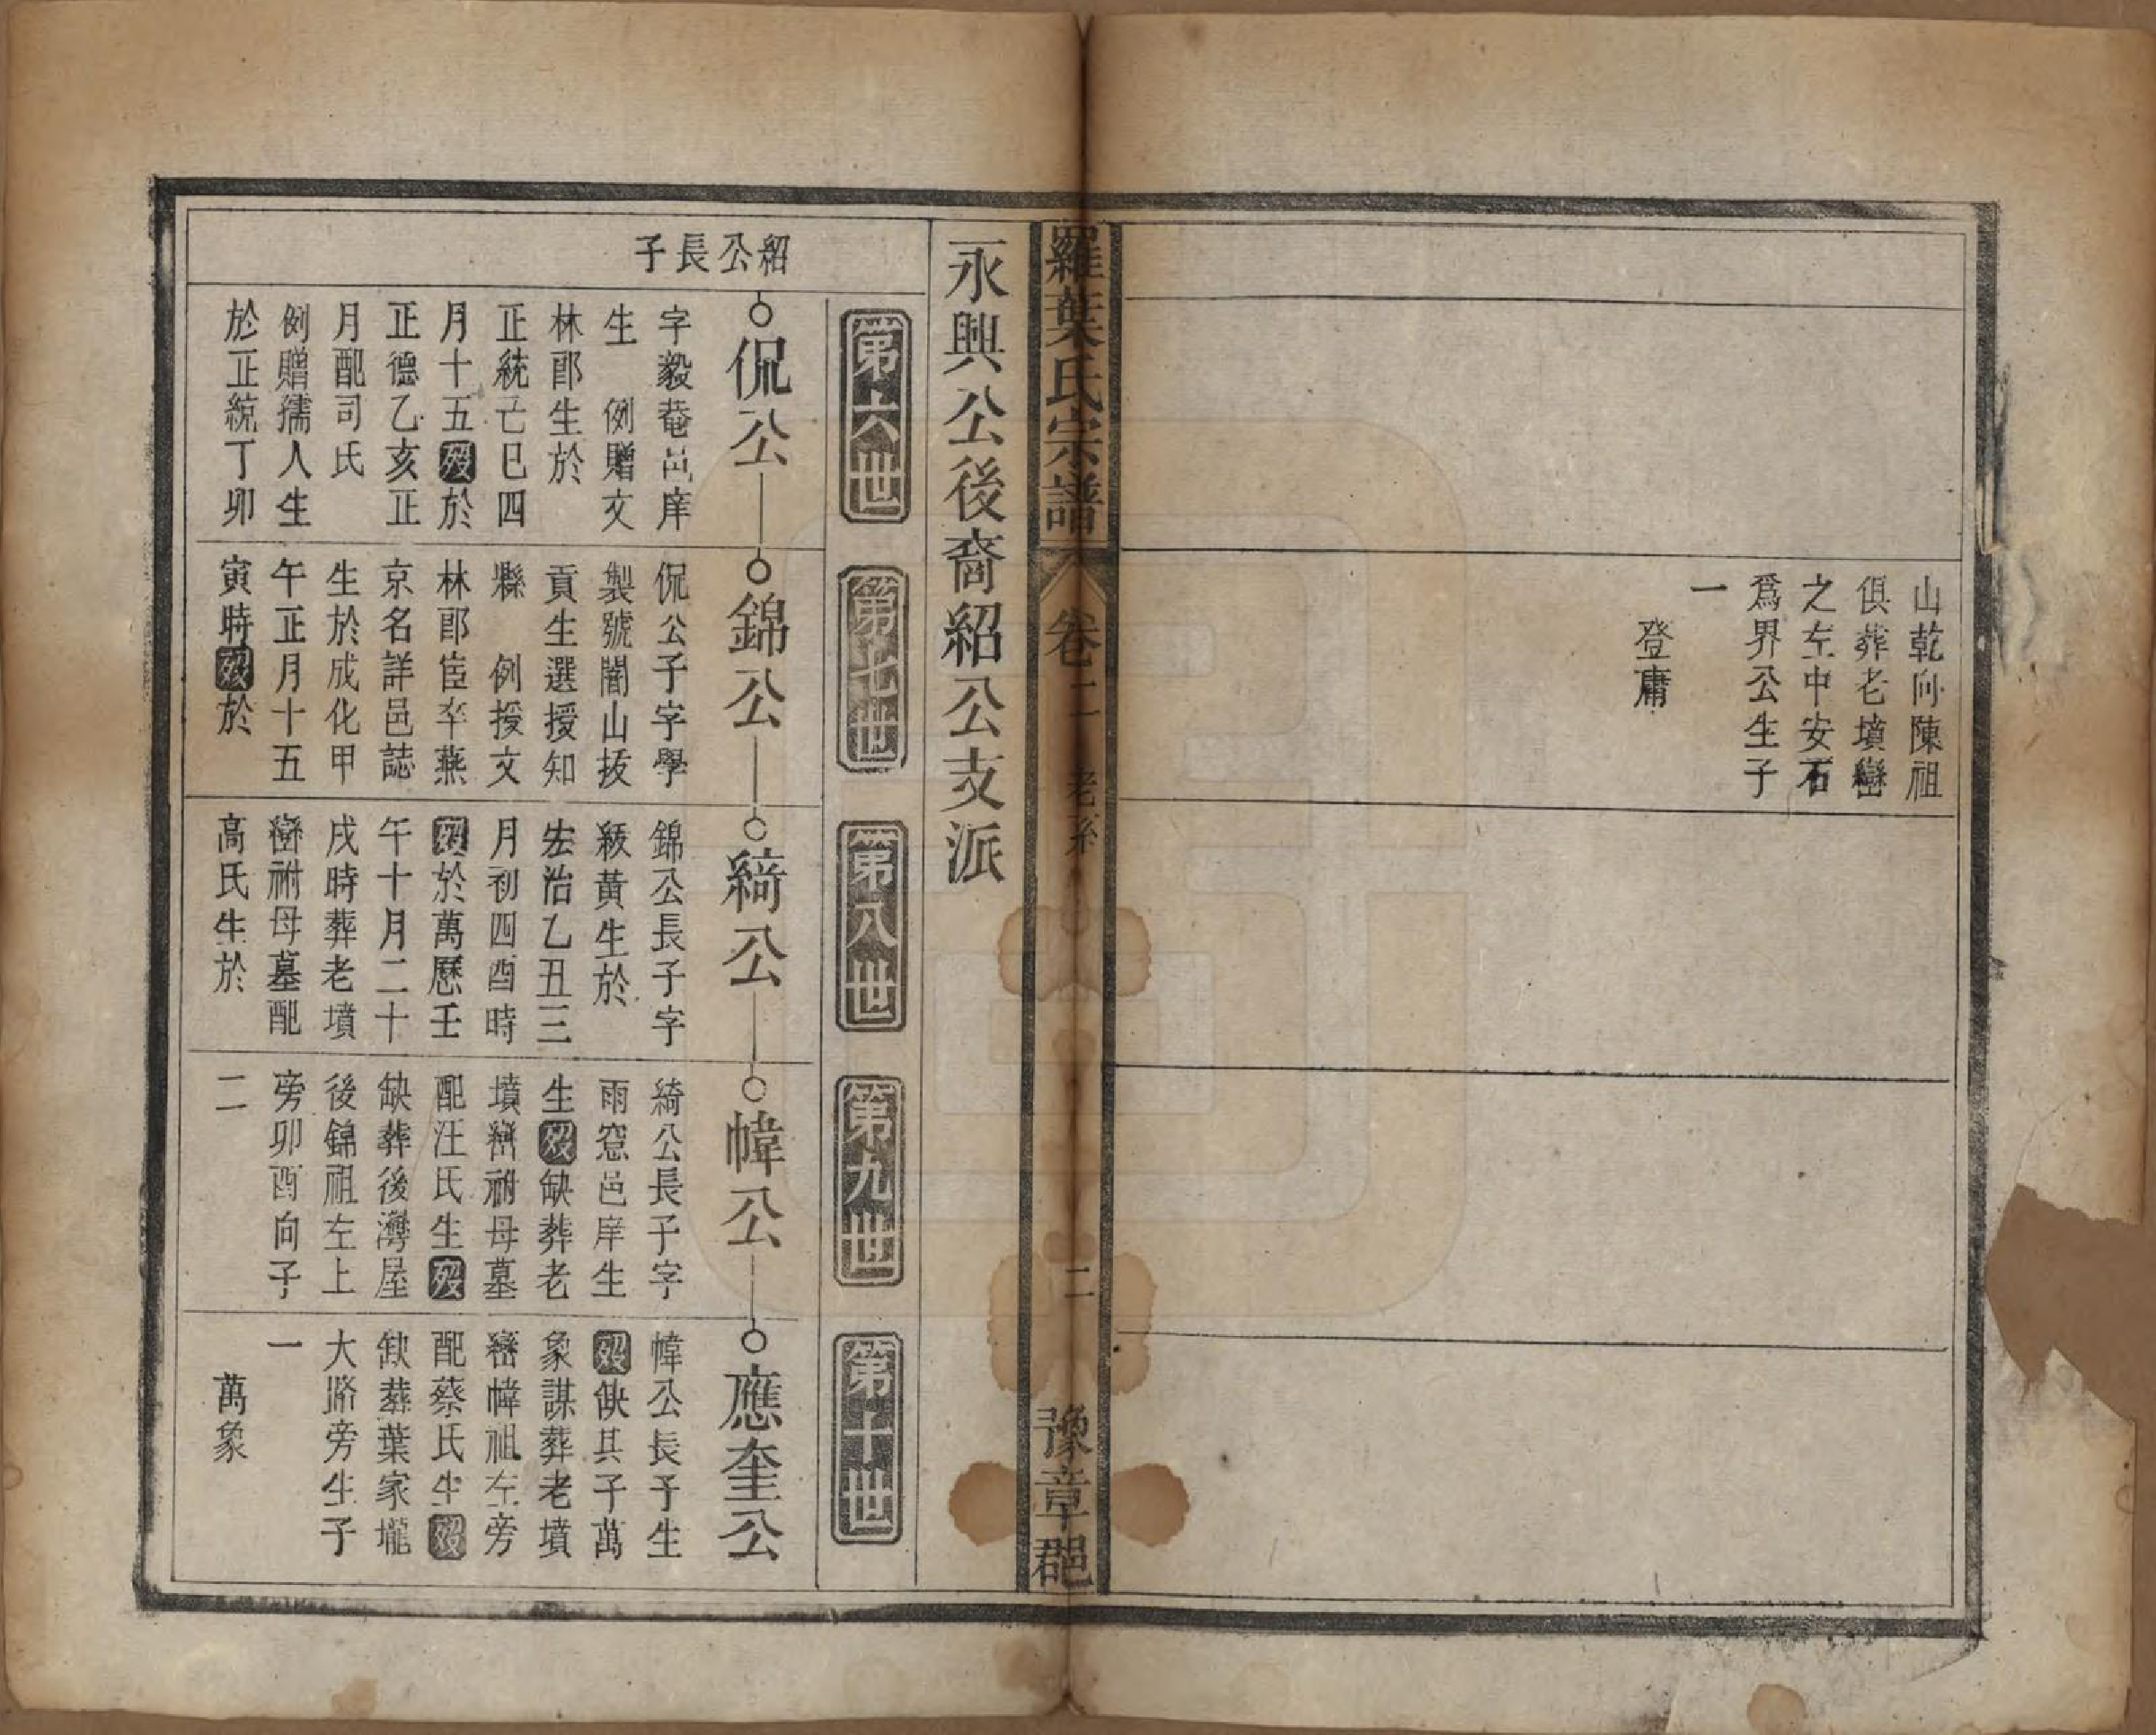 山乾向陳祖
俱葬老墳巒
之左中安石
爲界公生子
一
登庸
羅葉氏宗譜 卷二 老系 二 豫章郡
永興公後裔紹公支派
第六世
第七世
第八世
第九世
第十世
紹公長子
侃公
字毅菴邑庠
生 例贈文
林郎生於
正統己巳四
月十五歿於
正德乙亥正
月配司氏
例贈孺人生
於正統丁卯
錦公
侃公子字學
製號闇山拔
貢生選授知
縣 例授文
林郎宦卒燕
京名詳邑誌
生於成化甲
午正月十五
寅時歿於
綺公
錦公長子字
綴黃生於
宏治乙丑三
月初四酉時
歿於萬歷壬
午十月二十
戌時葬老墳
巒祔母墓配
高氏生於
幃公
綺公長子字
雨窓邑庠生
生歿缺葬老
墳巒祔母墓
配汪氏生歿
缺葬後灣屋
後錦祖左上
旁卯酉向子
二
應奎公
幃公長子生
歿缺其子萬
象謀葬老墳
巒幃祖左旁
配蔡氏生歿
缺葬葉家壠
大路旁生子
一
萬象